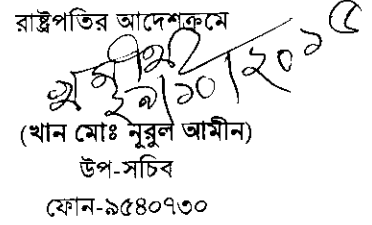 রাষ্ট্রপতির আদেশক্রমে
২৯/১০/২০১৫
(খান মোঃ নূরুল আমীন)
উপ-সচিব
ফোন-৯৫৪০৭৩০